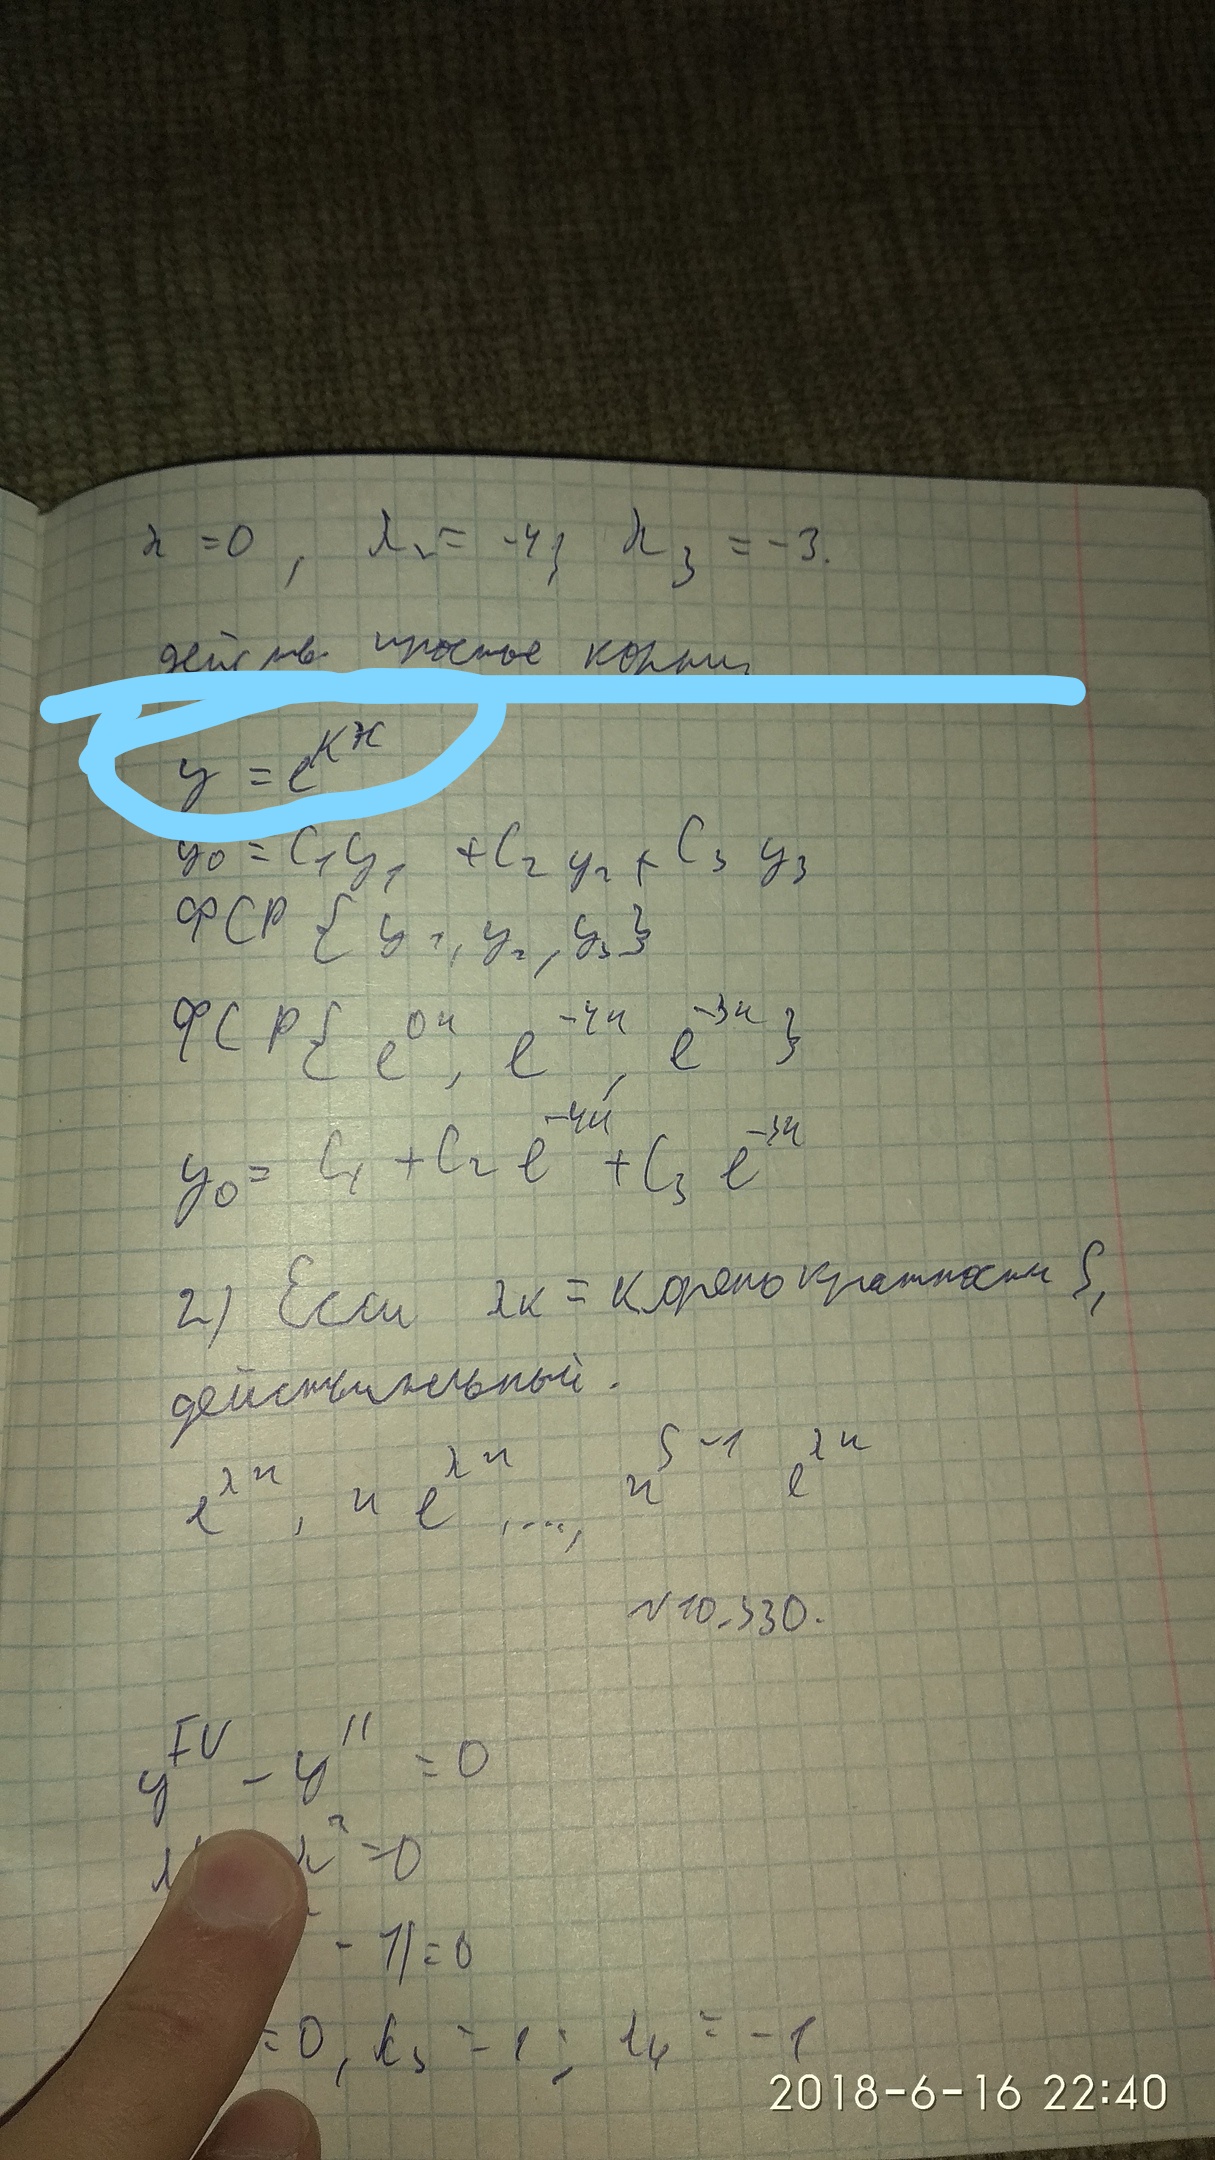 λ =0, λ₂= -4; λ₃ = -3.
действ. простые корни
y = e^{кх}
y₀ = C₁y₁ + C₂ y₂ + C₃ y₃
ФСР { y₁, y₂, y₃}
ФСР { e^{0x}, e^{-4x}, e^{-3x} }
y₀= C₁ + C₂ e^{-4x} + C₃ e^{-3x}
2) Если λк = корень кратности S,
действительный.
e^{λx}, x e^{λx}, ..., x^{S-1} e^{λx}
N10.330.
y^{IV} - y'' = 0
λ² =0
- 1)=0
=0, λ₃ = 1; λ₄ = -1
2018-6-16 22:40